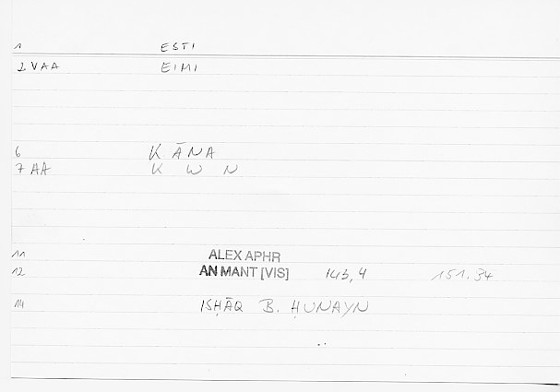 1 ESTI
2 VAA EIMI
6 KĀNA
7 AA K W N
11 ALEX APHR
12 AN MANT [VIS] 143,4 151.34
14 ISḤĀQ B. ḤUNAYN